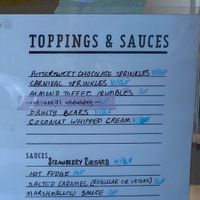 TOPPINGS & SAUCES
BITTERSWEET CHOCOLATE SPRINKLES V/GF
CARNIVAL SPRINKLES V/GF
ALMOND TOFFEE CRUMBLES GF
FRUITY BEARS V/GF
COCONUT WHIPPED CREAM V/GF
SAUCES
STRAWBERRY RHUBARB V/GF
HOT FUDGE GF
SALTED CARAMEL (REGULAR OR VEGAN) GF
MARSHMALLOW SAUCE GF